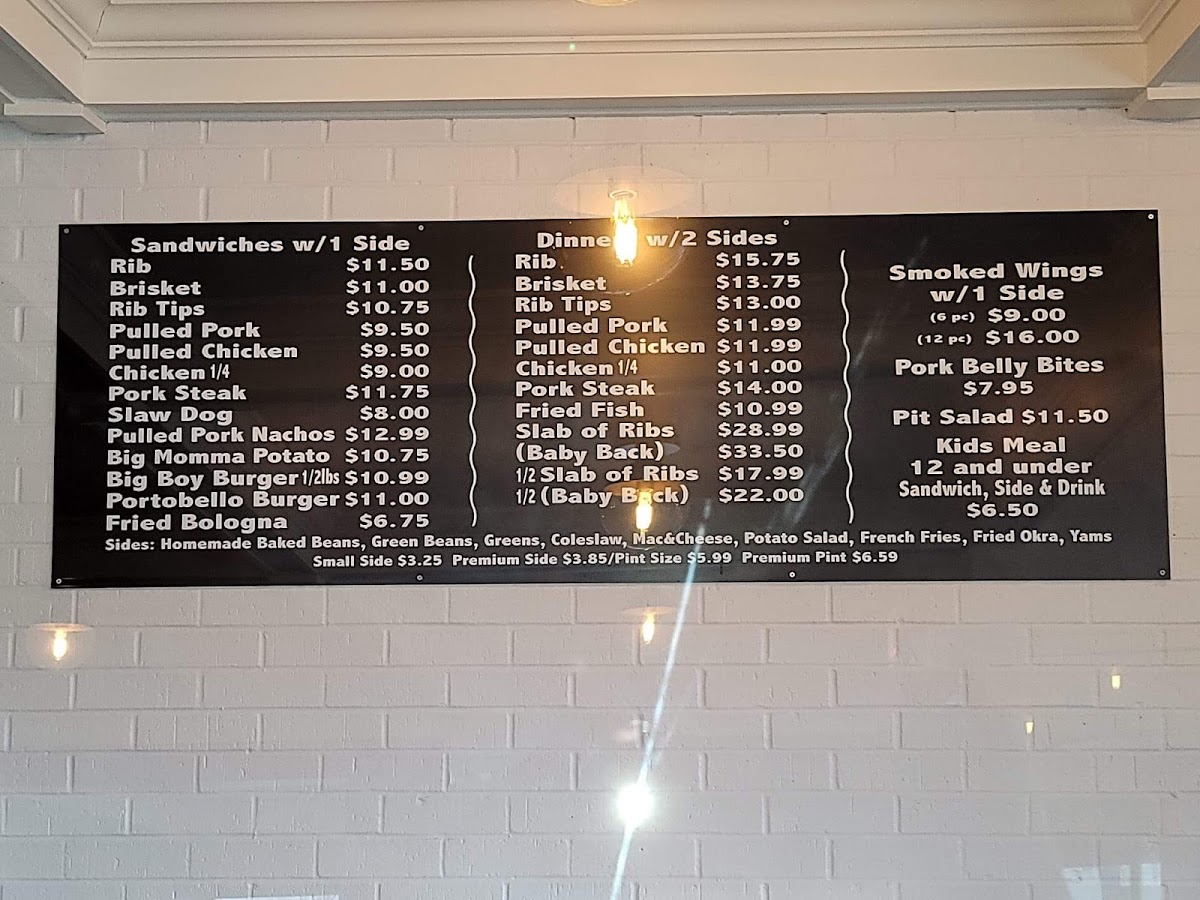 Sandwiches w/1 Side
Rib $11.50
Brisket $11.00
Rib Tips $10.75
Pulled Pork $9.50
Pulled Chicken $9.50
Chicken 1/4 $9.00
Pork Steak $11.75
Slaw Dog $8.00
Pulled Pork Nachos $12.99
Big Momma Potato $10.75
Big Boy Burger 1/2lbs $10.99
Portobello Burger $11.00
Fried Bologna $6.75
Dinners w/2 Sides
Rib $15.75
Brisket $13.75
Rib Tips $13.00
Pulled Pork $11.99
Pulled Chicken $11.99
Chicken 1/4 $11.00
Pork Steak $14.00
Fried Fish $10.99
Slab of Ribs $28.99
(Baby Back) $33.50
1/2 Slab of Ribs $17.99
1/2 (Baby Back) $22.00
Smoked Wings
w/1 Side
(6 pc) $9.00
(12 pc) $16.00
Pork Belly Bites
$7.95
Pit Salad $11.50
Kids Meal
12 and under
Sandwich, Side & Drink
$6.50
Sides: Homemade Baked Beans, Green Beans, Greens, Coleslaw, Mac&Cheese, Potato Salad, French Fries, Fried Okra, Yams
Small Side $3.25 Premium Side $3.85/Pint Size $5.99 Premium Pint $6.59